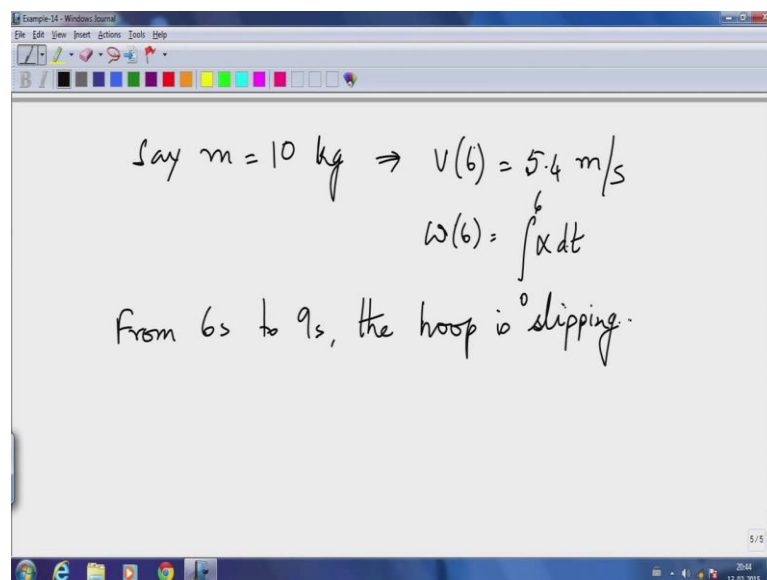 Example-14 - Windows Journal
File Edit View Insert Actions Tools Help
B I
Say m = 10 kg ⇒ V(6) = 5.4 m/s
ω(6) = ∫₀⁶ α dt
From 6s to 9s, the hoop is slipping.
5/5
20:44
17-02-2015